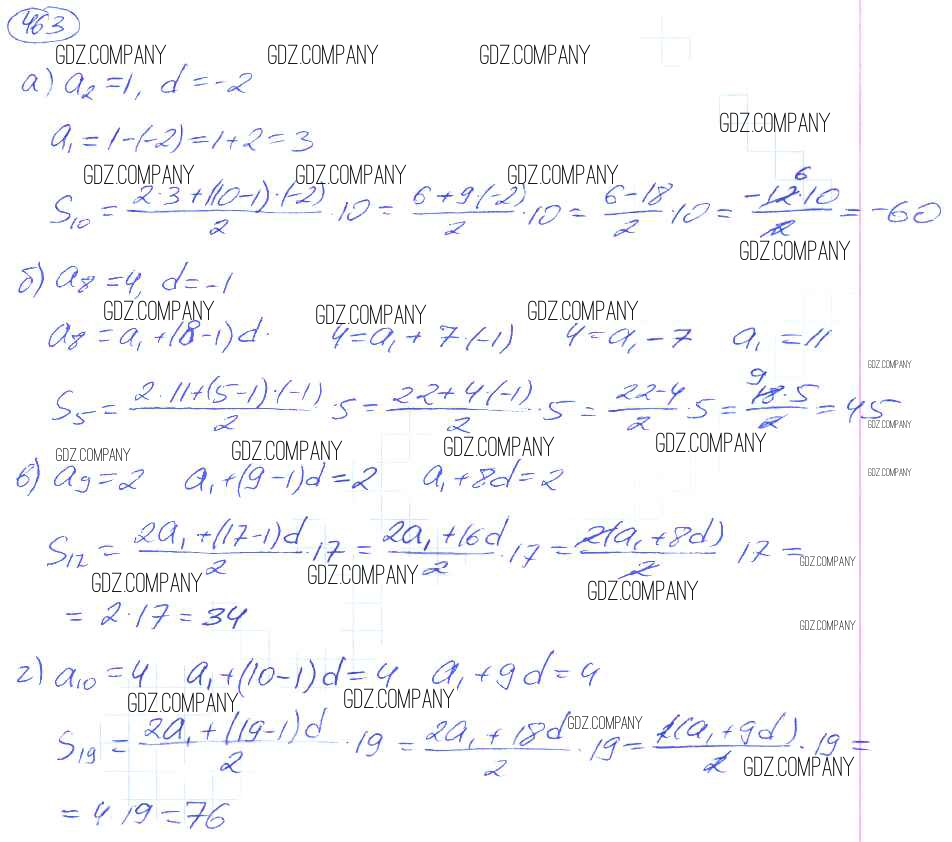 463
GDZ.COMPANY GDZ.COMPANY GDZ.COMPANY
а) a₂ = 1, d = -2
GDZ.COMPANY
a₁ = 1-(-2) = 1+2 = 3
GDZ.COMPANY GDZ.COMPANY GDZ.COMPANY
S₁₀ = (2·3+(10-1)·(-2))/2 · 10 = (6+9(-2))/2 · 10 = (6-18)/2 · 10 = (-12·10)/2 = -60 6
GDZ.COMPANY
б) a₈ = 4, d = -1
GDZ.COMPANY GDZ.COMPANY GDZ.COMPANY
a₈ = a₁+(8-1)d 4 = a₁ + 7·(-1) 4 = a₁ - 7 a₁ = 11
GDZ.COMPANY
S₅ = (2·11+(5-1)·(-1))/2 · 5 = (22+4(-1))/2 · 5 = (22-4)/2 · 5 = (18·5)/2 = 45 9
GDZ.COMPANY
GDZ.COMPANY GDZ.COMPANY GDZ.COMPANY GDZ.COMPANY
в) a₉ = 2 a₁+(9-1)d = 2 a₁+8d = 2
GDZ.COMPANY
S₁₇ = (2a₁+(17-1)d)/2 · 17 = (2a₁+16d)/2 · 17 = (2(a₁+8d))/2 17 =
GDZ.COMPANY
GDZ.COMPANY GDZ.COMPANY GDZ.COMPANY
= 2·17 = 34
GDZ.COMPANY
г) a₁₀ = 4 a₁+(10-1)d = 4 a₁+9d = 4
GDZ.COMPANY GDZ.COMPANY GDZ.COMPANY
S₁₉ = (2a₁+(19-1)d)/2 · 19 = (2a₁+18d)/2 · 19 = (2(a₁+9d))/2 · 19 =
GDZ.COMPANY
= 4 19 = 76